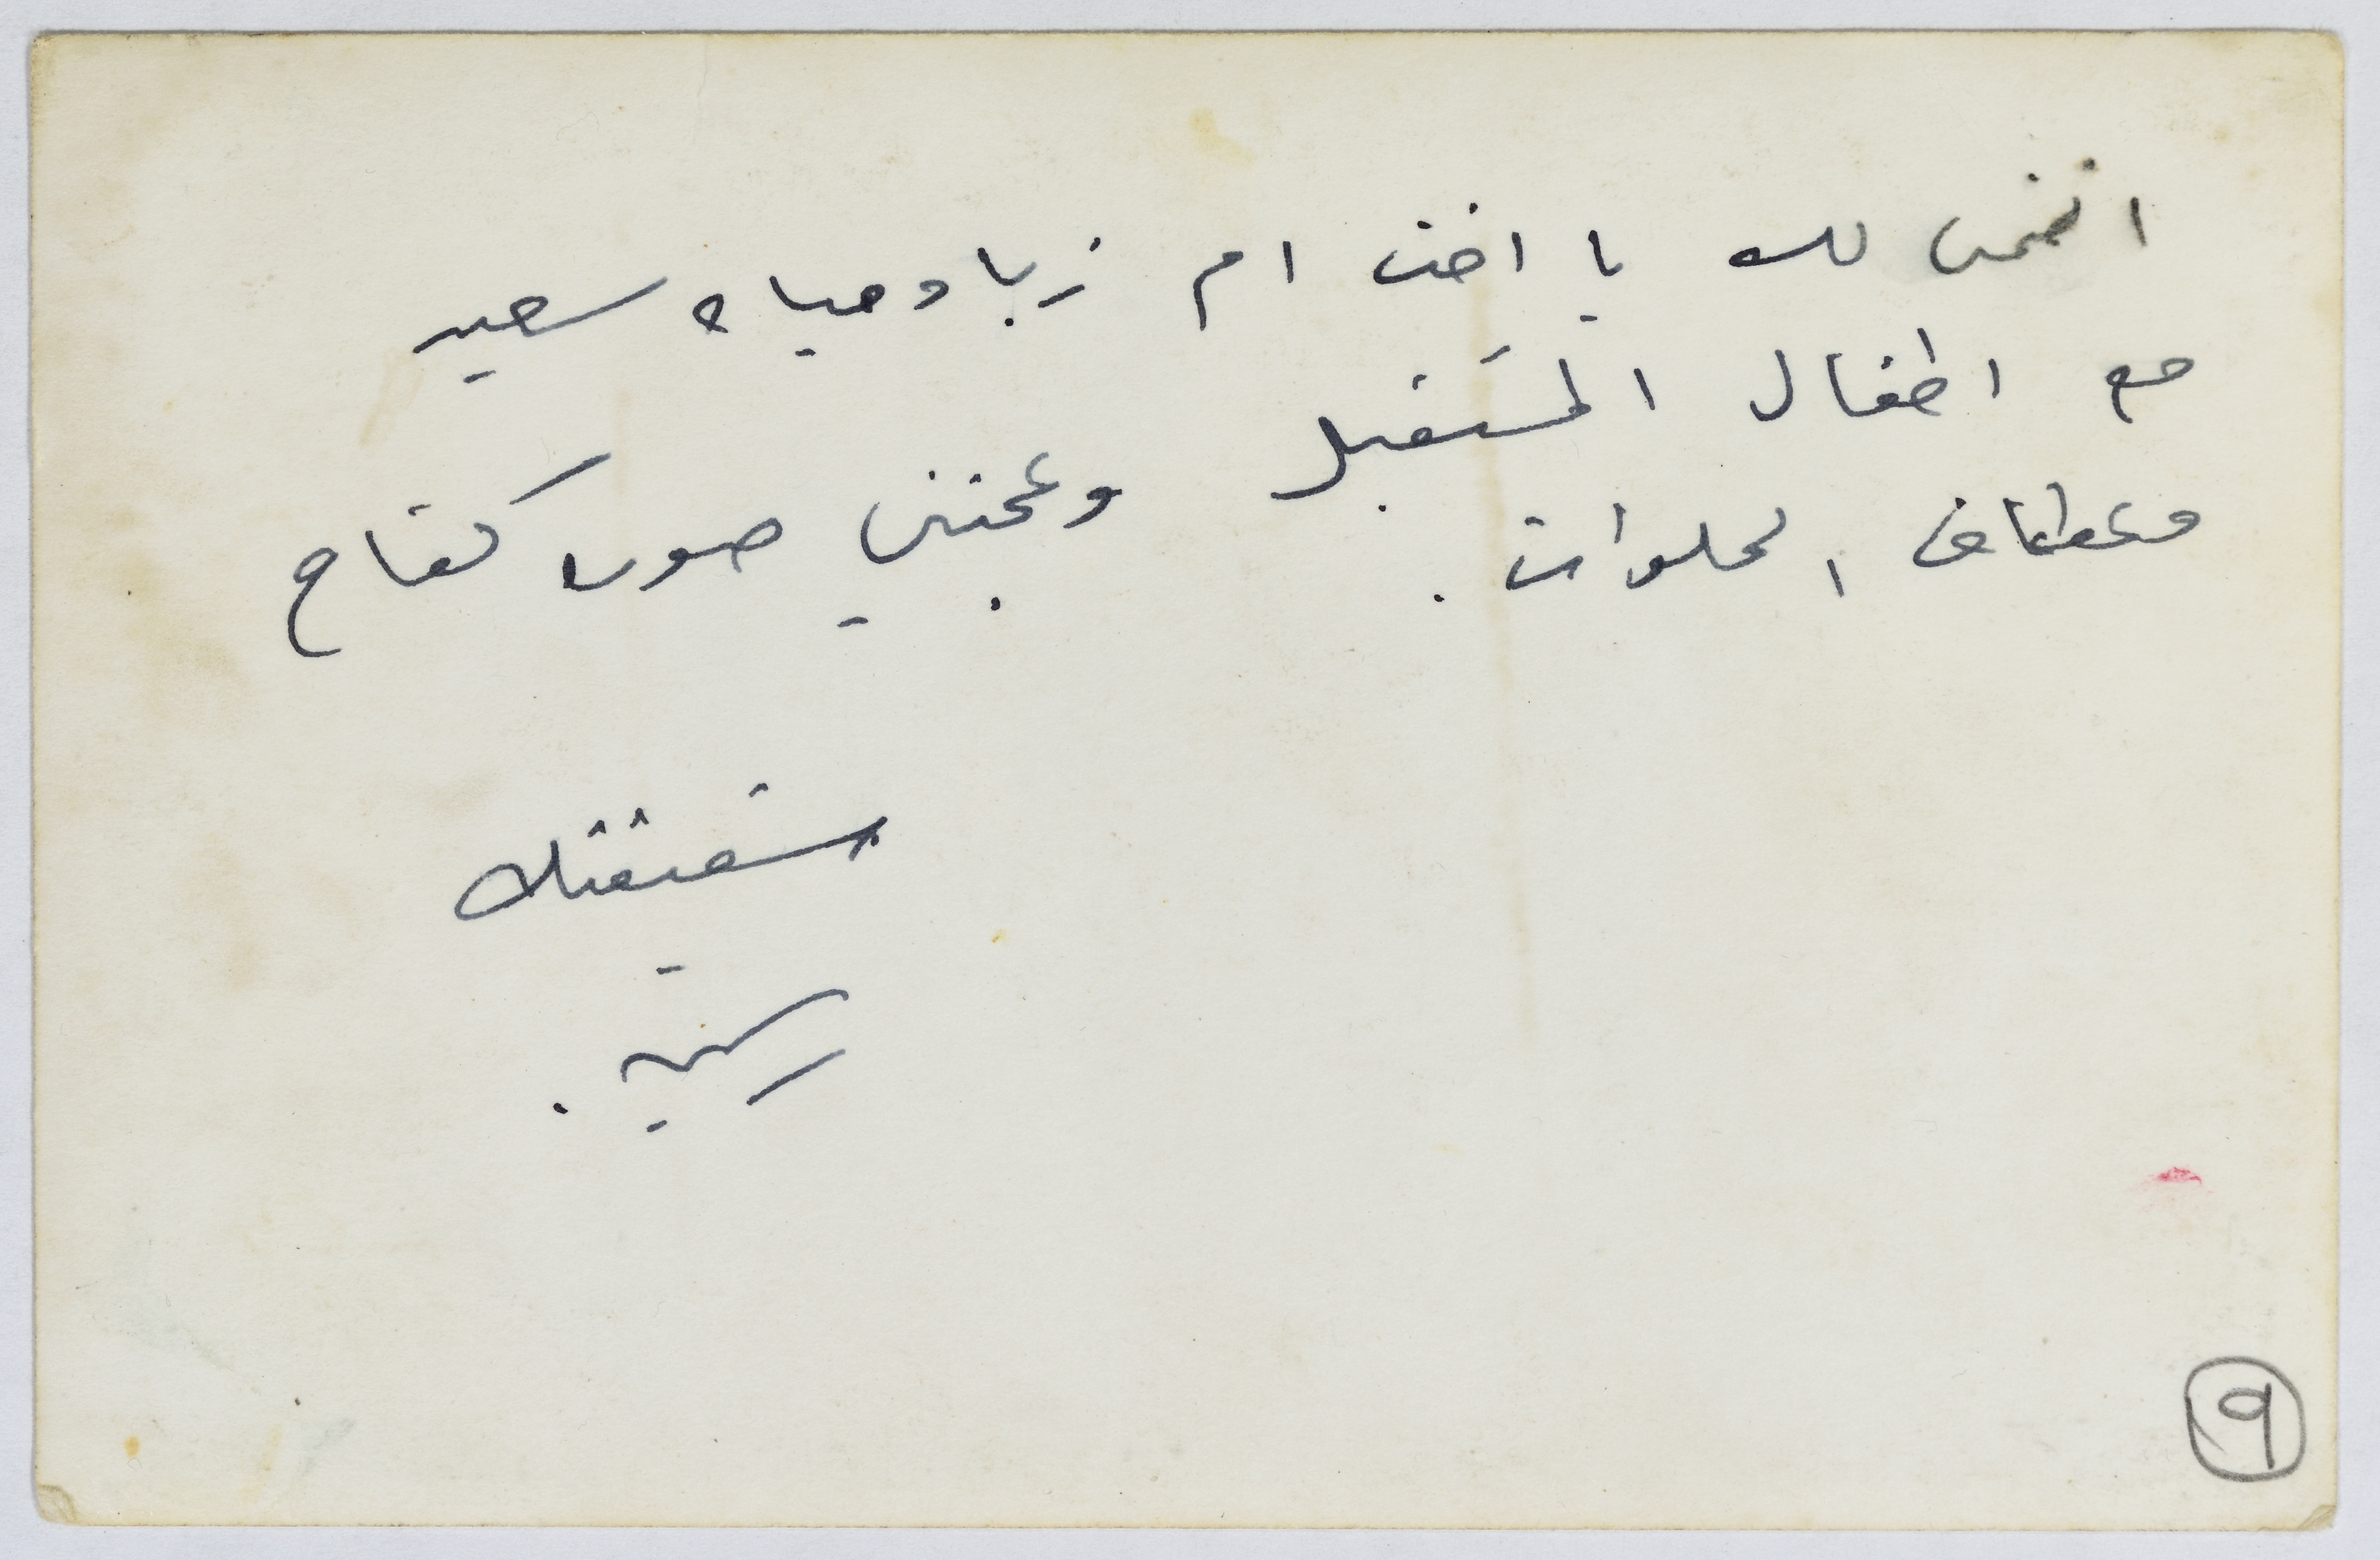 اتمنى لك يا اخت ام زياد حياه سعيده
مع اطفال المستقبل وعجبتني صوره كفاح
وعفاف الحلوات.
شقيقتك
٩